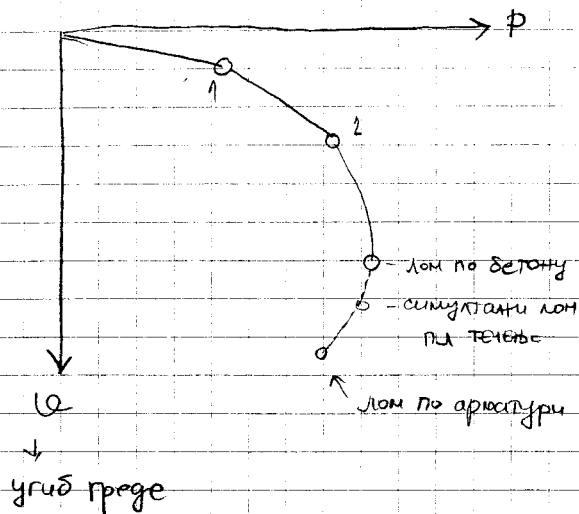 P
1
2
- лом по бетону
- симултани лом
пл течење
лом по арматури
υ
угиб греде